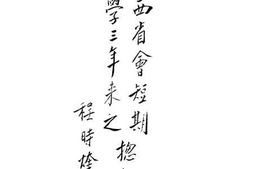 西省會短期
學三年来之揔
程時煃